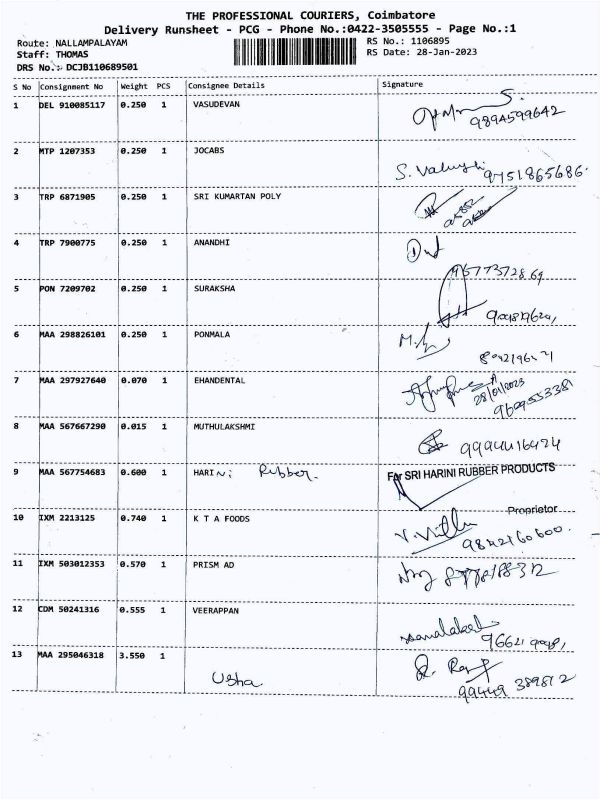 THE PROFESSIONAL COURIERS, Coimbatore
Delivery Runsheet - PCG - Phone No.:0422-3505555 - Page No.:1
Route: NALLAMPALAYAM
Staff: THOMAS
DRS No.: DCJB110689501
RS No.: 1106895
RS Date: 28-Jan-2023
S No Consignment No Weight PCS Consignee Details Signature
1 DEL 910085117 0.250 1 VASUDEVAN
9894599642
2 MTP 1207353 0.250 1 JOCABS
9751865686.
3 TRP 6871905 0.250 1 SRI KUMARTAN POLY
4 TRP 7900775 0.250 1 ANANDHI
5 PON 7209702 0.250 1 SURAKSHA
6 MAA 298826101 0.250 1 PONMALA
7 MAA 297927640 0.070 1 EHANDENTAL
28/01/2023
9600553381
8 MAA 567667290 0.015 1 MUTHULAKSHMI
9994416424
9 MAA 567754683 0.600 1 HARINi Rubber.
For SRI HARINI RUBBER PRODUCTS
Proprietor
10 IXM 2213125 0.740 1 K T A FOODS
9842160600.
11 IXM 503012353 0.570 1 PRISM AD
12 CDM 50241316 0.555 1 VEERAPPAN
13 MAA 295046318 3.550 1
Usha
99449 389812